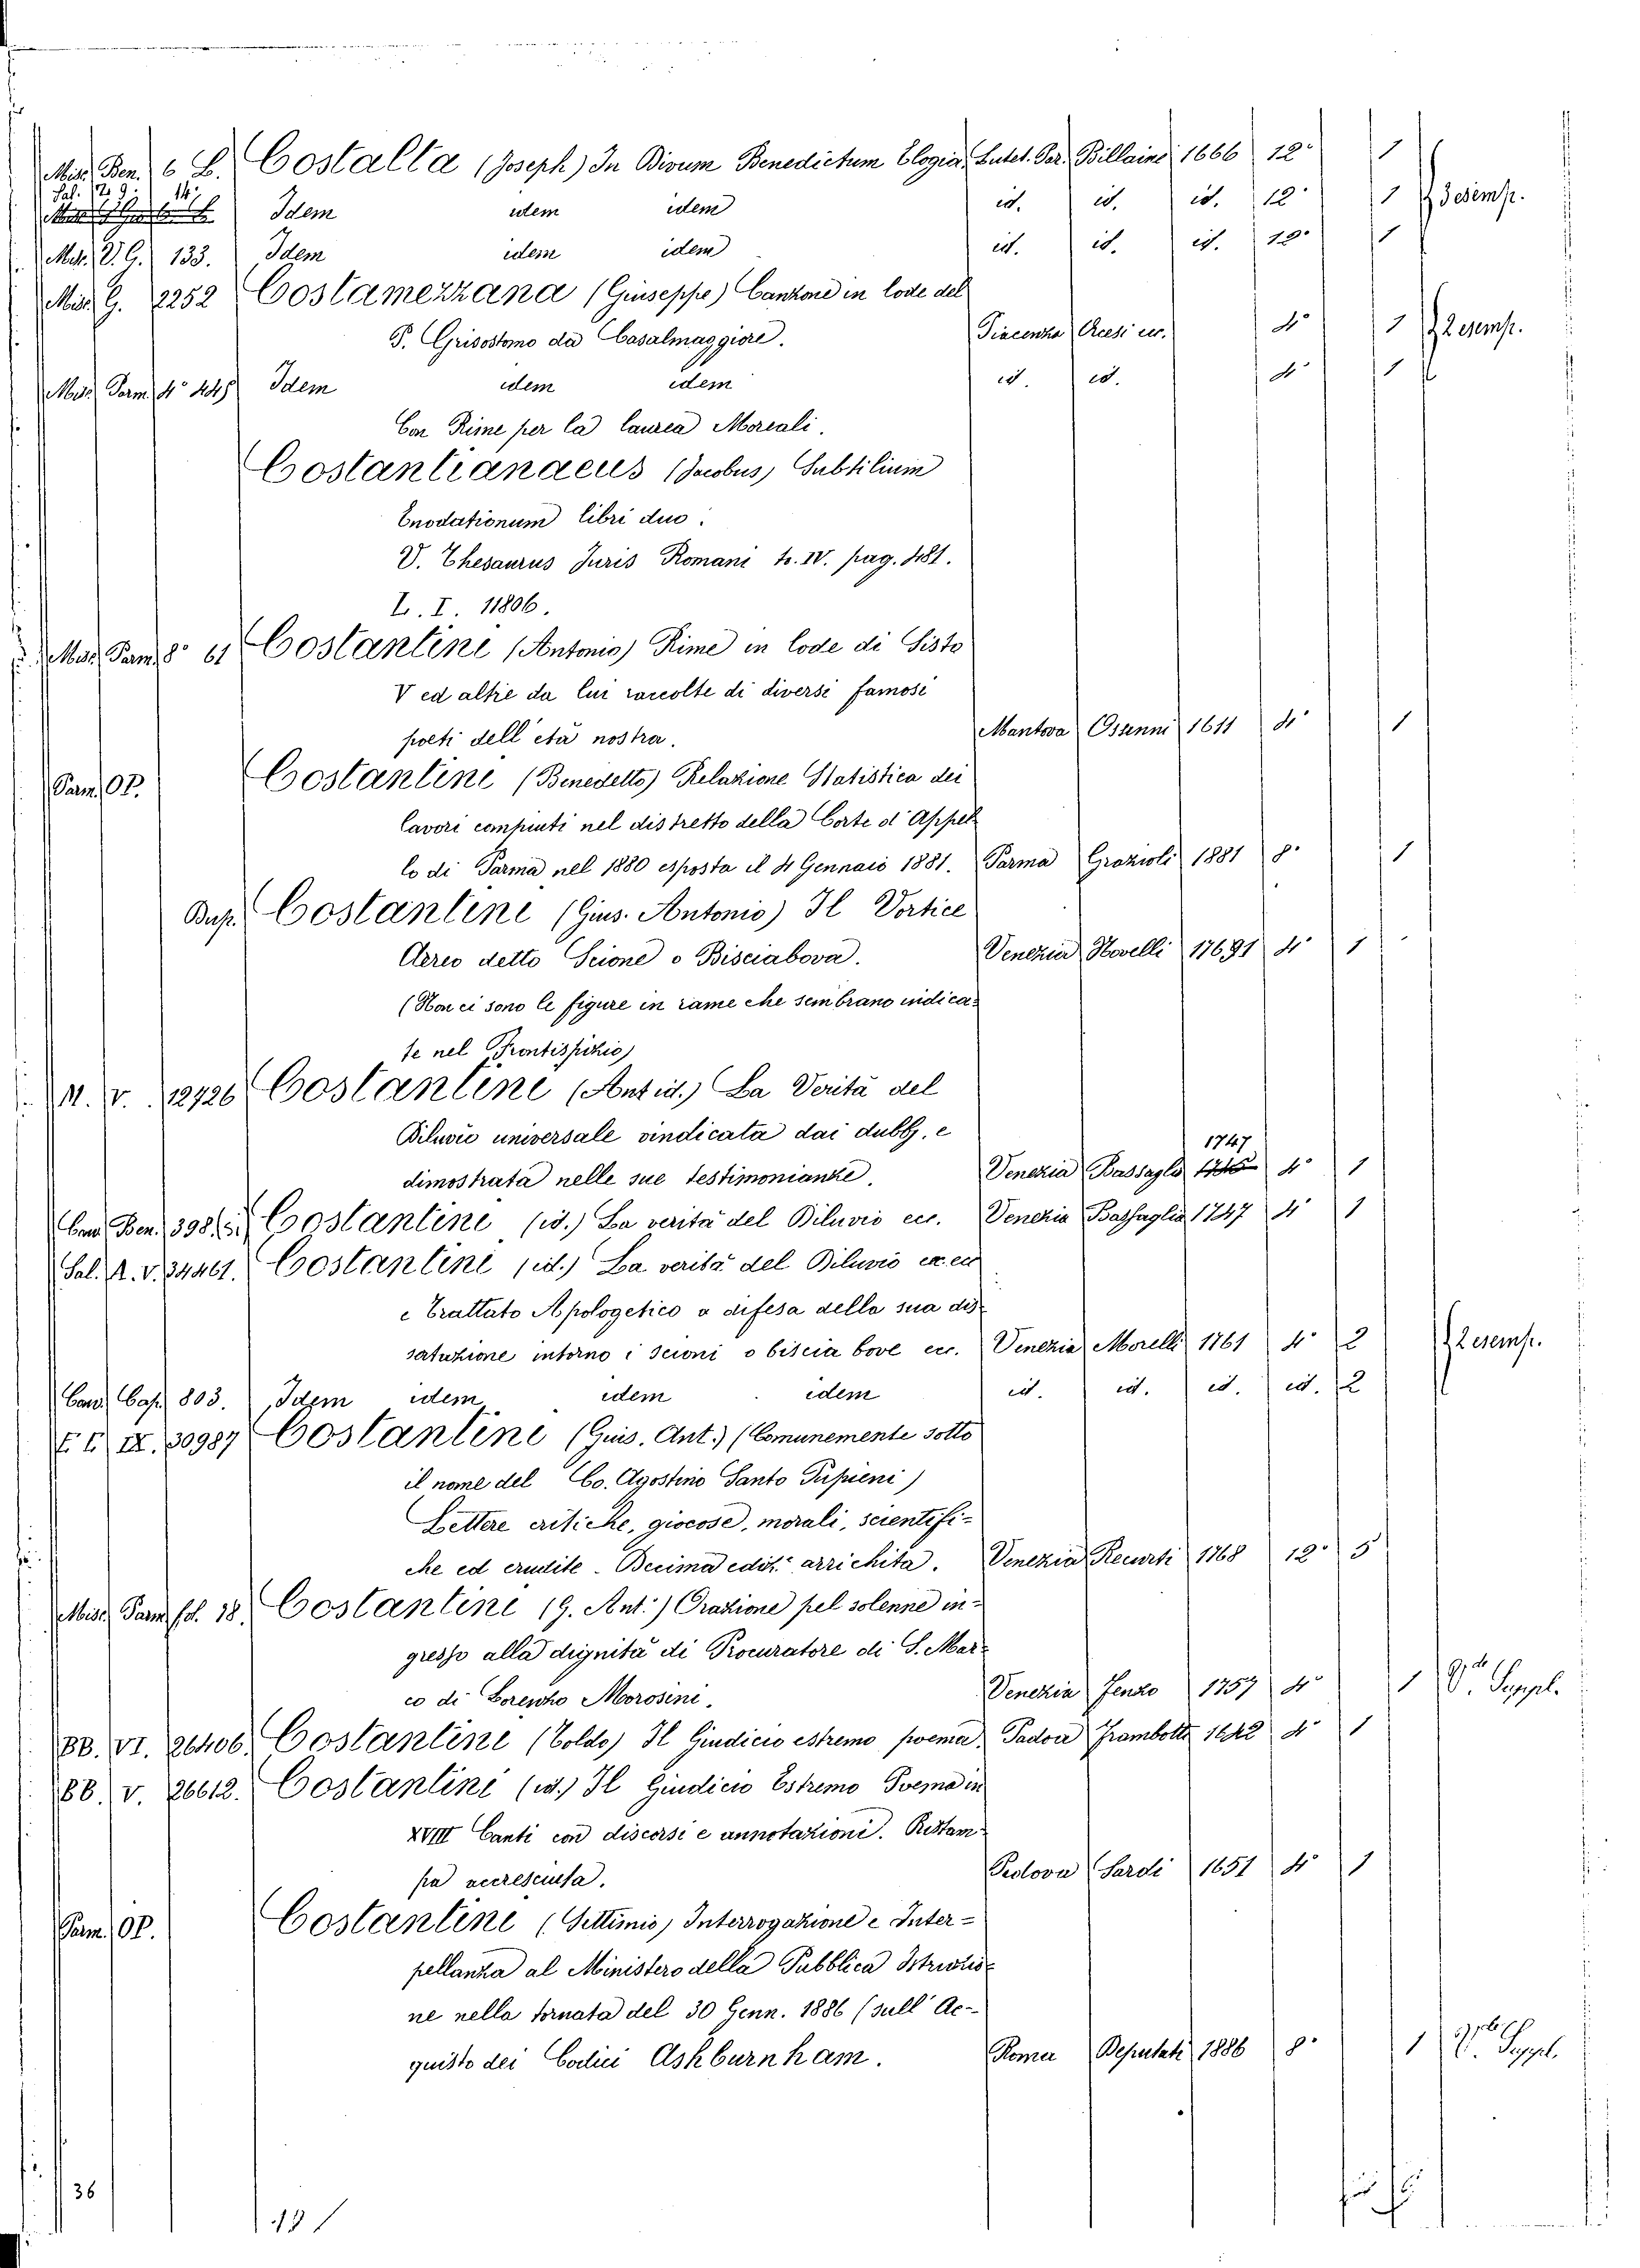 Misc. Ben. 6 L. Costalta (Joseph) In Divum Benedictum Elogia. Lutet. Par. Billaine 1666 12° 1
Sal. 14. Idem idem idem id. id. id. 12° 1 3 esemp.
Mis. V. G. 133. Idem idem idem id. id. id. 12° 1
Mis. G. 2252 Costamezzana (Giuseppe) Canzone in lode del
P. Grisostomo da Casalmaggiore. Piacenza 4° 1 2 esemp.
Mis. Parm. 4° Idem idem idem id. id. 4° 1
Con Rime per la laurea Moreali.
Costantianaeus (Jacobus) Subtilium
Enodationum libri duo.
V. Thesaurus Juris Romani to. IV. pag. 481.
L. I. 11806.
Mis. Parm. 8° 61 Costantini (Antonio) Rime in lode di Sisto
V ed altre da lui raccolte di diversi famosi
poeti dell'età nostra. Mantova Osanni 1611 4° 1
Parm. OP. Costantini (Benedetto) Relazione Statistica dei
lavori compiuti nel distretto della Corte d'Appel
lo di Parma nel 1880 esposta il 4 Gennaio 1881. Parma Grazioli 1881 8° 1
Dup. Costantini (Gius. Antonio) Il Vortice
Aereo detto Scione o Bisciabova. Venezia Novelli 4° 1
(Non ci sono le figure in rame che sembrano indica=
te nel Frontispizio)
M. V. 12726 Costantini (Ant. id.) La Verità del
Diluvio universale vindicata dai dubbj, e
dimostrata nelle sue testimonianze. Venezia Bassaglia 1747 4° 1
Cam. Ben. 398. Costantini (id.) La verità del Diluvio ecc. Venezia Bassaglia 1747 4° 1
Sal. A. V. 34461. Costantini (id.) La verità del Diluvio ec. ec
e Trattato Apologetico a difesa della sua dis
sertazione intorno i scioni o biscia bove ecc. Venezia Morelli 1761 4° 2 2 esemp.
Cam. Cap. 803. Idem idem idem idem id. id. id. id. 2
IX. 30987 Costantini (Gius. Ant.) (Comunemente sotto
il nome del Co. Agostino Santo Pupieni)
Lettere critiche, giocose, morali, scientifi=
che ed erudite. Decima ediz. arrichita. Venezia Recurti 1768 12° 5
Misc. Parm. fol. 18. Costantini (G. Ant.) Orazione pel solenne in=
gresso alla dignità di Procuratore di S. Mar=
co di Lorenzo Morosini. Venezia Fenzo 1757 4° 1 V. Suppl.
BB. VI. 26406. Costantini (Toldo) Il Giudicio estremo poema. Padova Frambotto 1642 4° 1
BB. V. 26612. Costantini (id.) Il Giudicio Estremo Poema in
XVIII Canti con discorsi e annotazioni. Ristam
pa accresciuta. Padova Sardi 1651 4° 1
Parm. OP. Costantini (Settimio) Interrogazione e Inter=
pellanza al Ministero della Pubblica Istruzio
ne nella tornata del 30 Genn. 1886 (sull'Ac-
quisto dei Codici Ashburnham. Roma Deputati 1886 8° 1 V. Suppl.
36